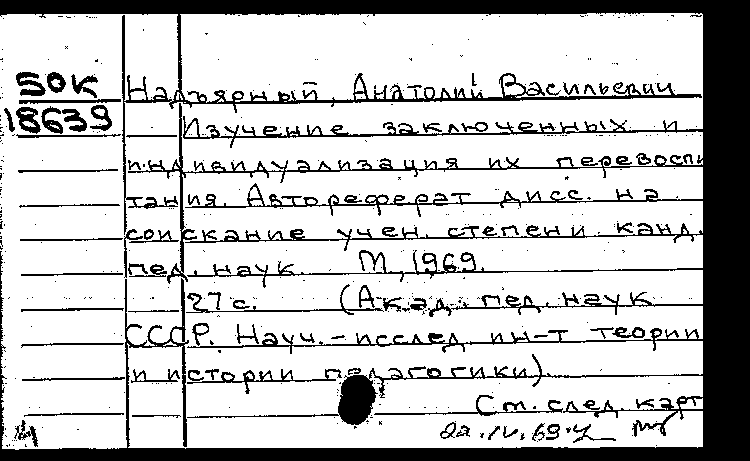 50К Надъярный, Анатолий Васильевич
18639 Изучение заключенных и
индивидуализация их перевоспи
тания. Автореферат дисс. на
соискание учен. степени канд.
пед. наук. М, 1969.
27 с. (Акад. пед. наук
СССР. Науч.-исслед. ин-т теории
и истории педагогики).
См. след. карт
22.IV.69.